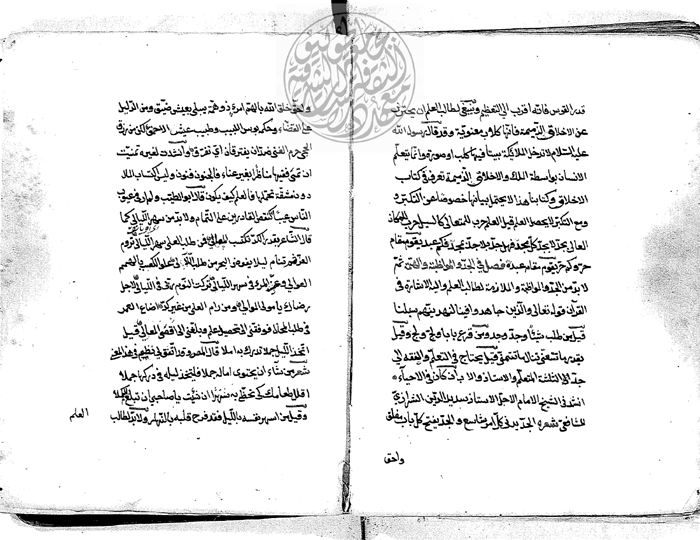 قدر القوس فانه اقرب الى التعظيم وينبغي لطالب العلم ان يحترز
عن الاخلاق الذميمة فانها كلاب معنوية وقد قال رسول الله
عليه السلام لا تدخل الملائكة بيتا فيه كلب او صورة وانما يتعلم
الانسان بواسطة الملك والاخلاق الذميمة تعرف في كتاب
الاخلاق وكتابنا هذا لا يحتمل بيانها خصوصا عن التكبر و
ومع التكبر لا يحصل العلم قيل العلم حرب للمتعالي كالسيل حرب للمكان
العالي بجد لا بجد كل مجد فهل جد بلا جد بمجد فكم عبد يقوم مقام
حر وكم حر يقوم مقام عبد فصل في الجد والمواظبة والهمة ثم
لا بد من الجد والمواظبة والملازمة لطالب العلم واليه الاشارة في
القرآن قوله تعالى والذين جاهدوا فينا لنهدينهم سبلنا
قيل من طلب شيئا وجد وجد ومن قرع بابا ولج ولج وقيل
بقدر ما تتعنى تنال ما تتمنى قيل يحتاج في التعلم والتفقه الى
جد الثلثة المتعلم والاستاذ والاب ان كان في الاحياء
انشدني الشيخ الامام الاجل الاستاذ سديد الدين الشيرازي
للشافعي شعر الجد يدني كل امر شاسع والجد يفتح كل باب مغلق
واحق
ولحق خلق الله بالهم امرؤ ذو همة يبلى بعيش ضيق ومن الدليل
على القضاء وحكمه بوس اللبيب وطيب عيش الاحمق لكن من رزق
الحجى حرم الغنى ضدان يفترقان اي تفرق وانشدت لغيره تمنيت
ان تمسي فقيها مناظرا بغير عناء فالجنون فنون وليس اكتساب المال
دون مشقة تحملها فالعلم كيف يكون قال ابو الطيب ولم ار في عيوب
الناس عيبا كنقص القادرين على التمام ولا بد من سهر الليالي كما
قال الشاعر بقدر الكد تكتسب المعالي فمن طلب العلى سهر الليالي تروم
العز ثم تنام ليلا يغوص البحر من طلب اللآلي علو الكعب بالهمم
العوالي وعز المرء في سهر الليالي تركت النوم ربي في الليالي لاجل
رضاك يا مولى الموالي ومن رام العلى من غير كد اضاع العمر
في طلب المحال فوفقني الى تحصيل علم وبلغني الى اقصى المعالي قيل
اتخذ الليل جملا تدرك به املا قال المصنف وقد اتفق لي نظم في هذا المعنى
شعر من شاء ان يحتوي اماله جملا فليتخذ ليله في دركها جملا
اقلل طعامك كي تحظى به سهرا ان شئت يا صاحبي ان تبلغ الكملا
وقيل من اسهر نفسه بالليل فقد فرح قلبه بالنهار ولا بد لطالب
العلم